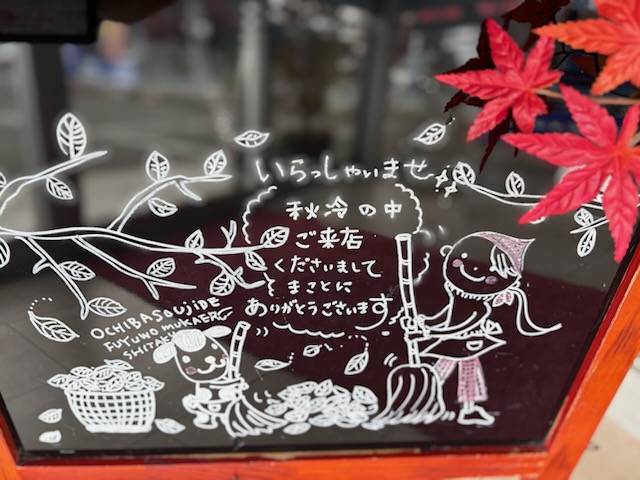 いらっしゃいませ
秋冷の中
ご来店
くださいまして
まことに
ありがとうございます
OCHIBASOUJIDE
FUYUWO MUKAERU